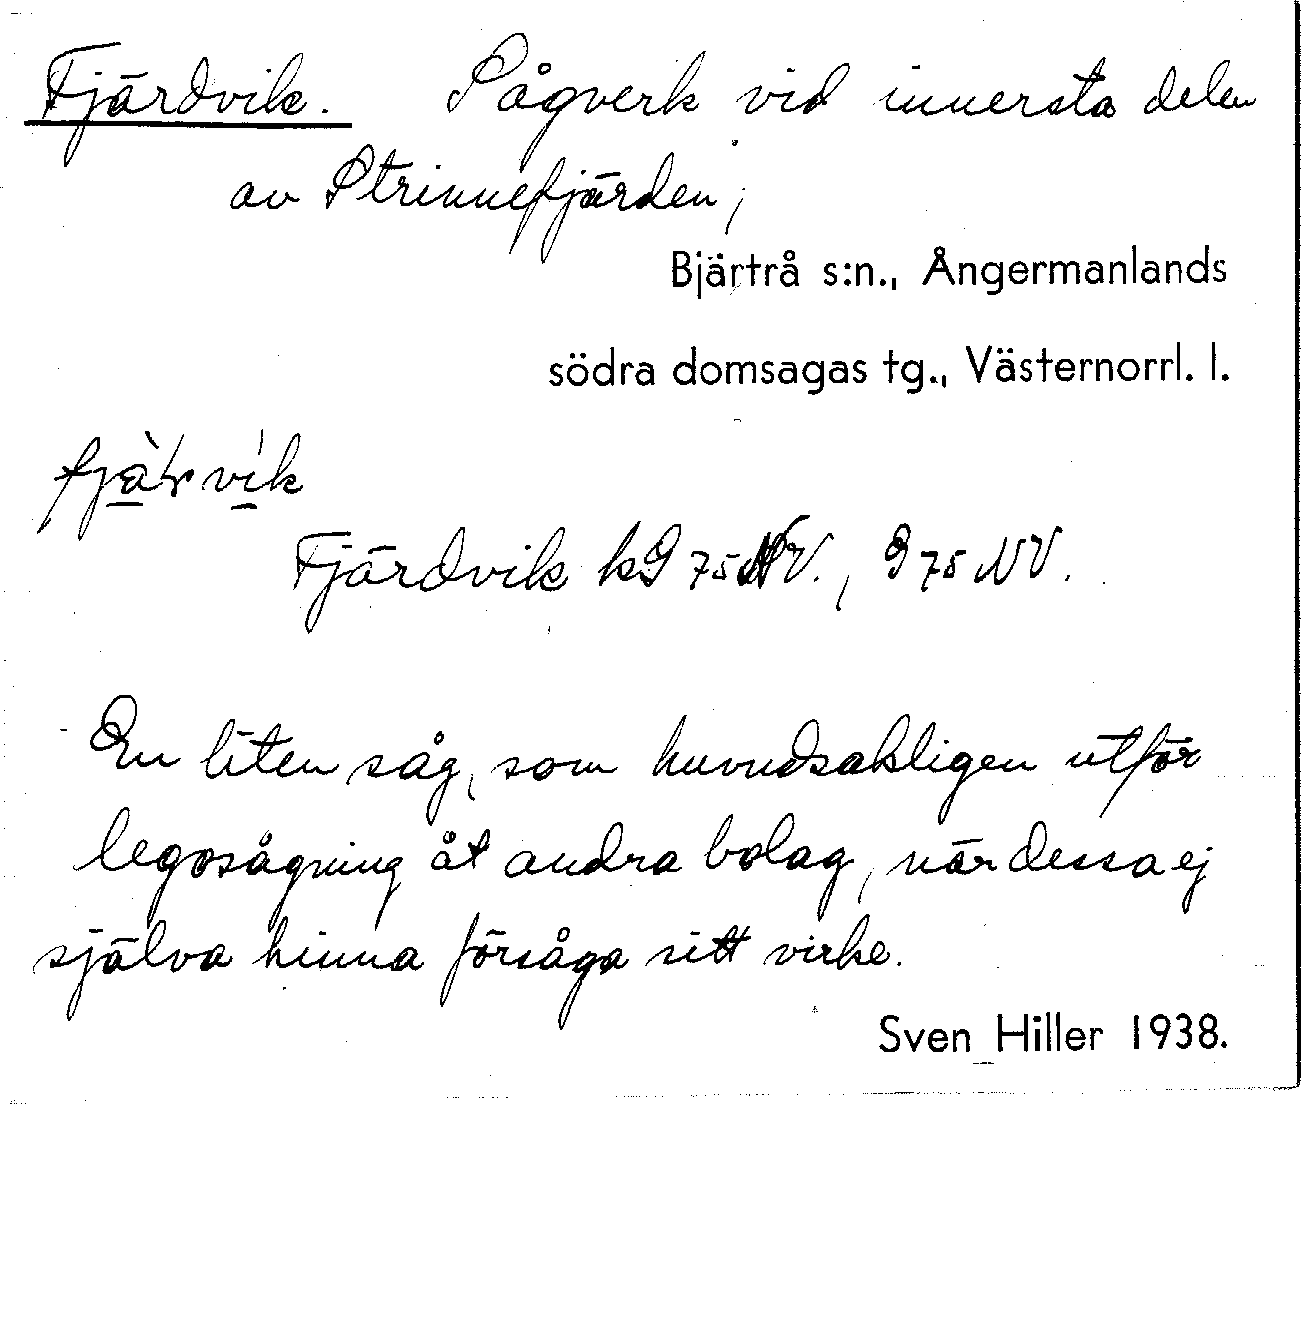 Fjärdvik. Sågverk vid innersta delen
av Strinnefjärden,
Bjärtrå s:n., Ångermanlands
södra domsagas tg., Västernorrl. l.
Fjärdvik kG 75 NV., G 75 NV.
En liten såg, som huvudsakligen utför
legosågning åt andra bolag, när dessa ej
själva hinna försåga sitt virke.
Sven Hiller 1938.